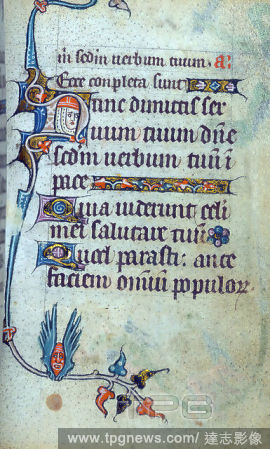 in scdm verbum tuum. a.
Ecce conpleta sunt
Nunc dimittis ser
uum tuum dne
scdm uerbum tuu i
pace
Quia uiderunt oculi
mei salutare tuu
Quod parasti: ante
faciem omniu populor
TPG
www.tpgnews.com/達志影像